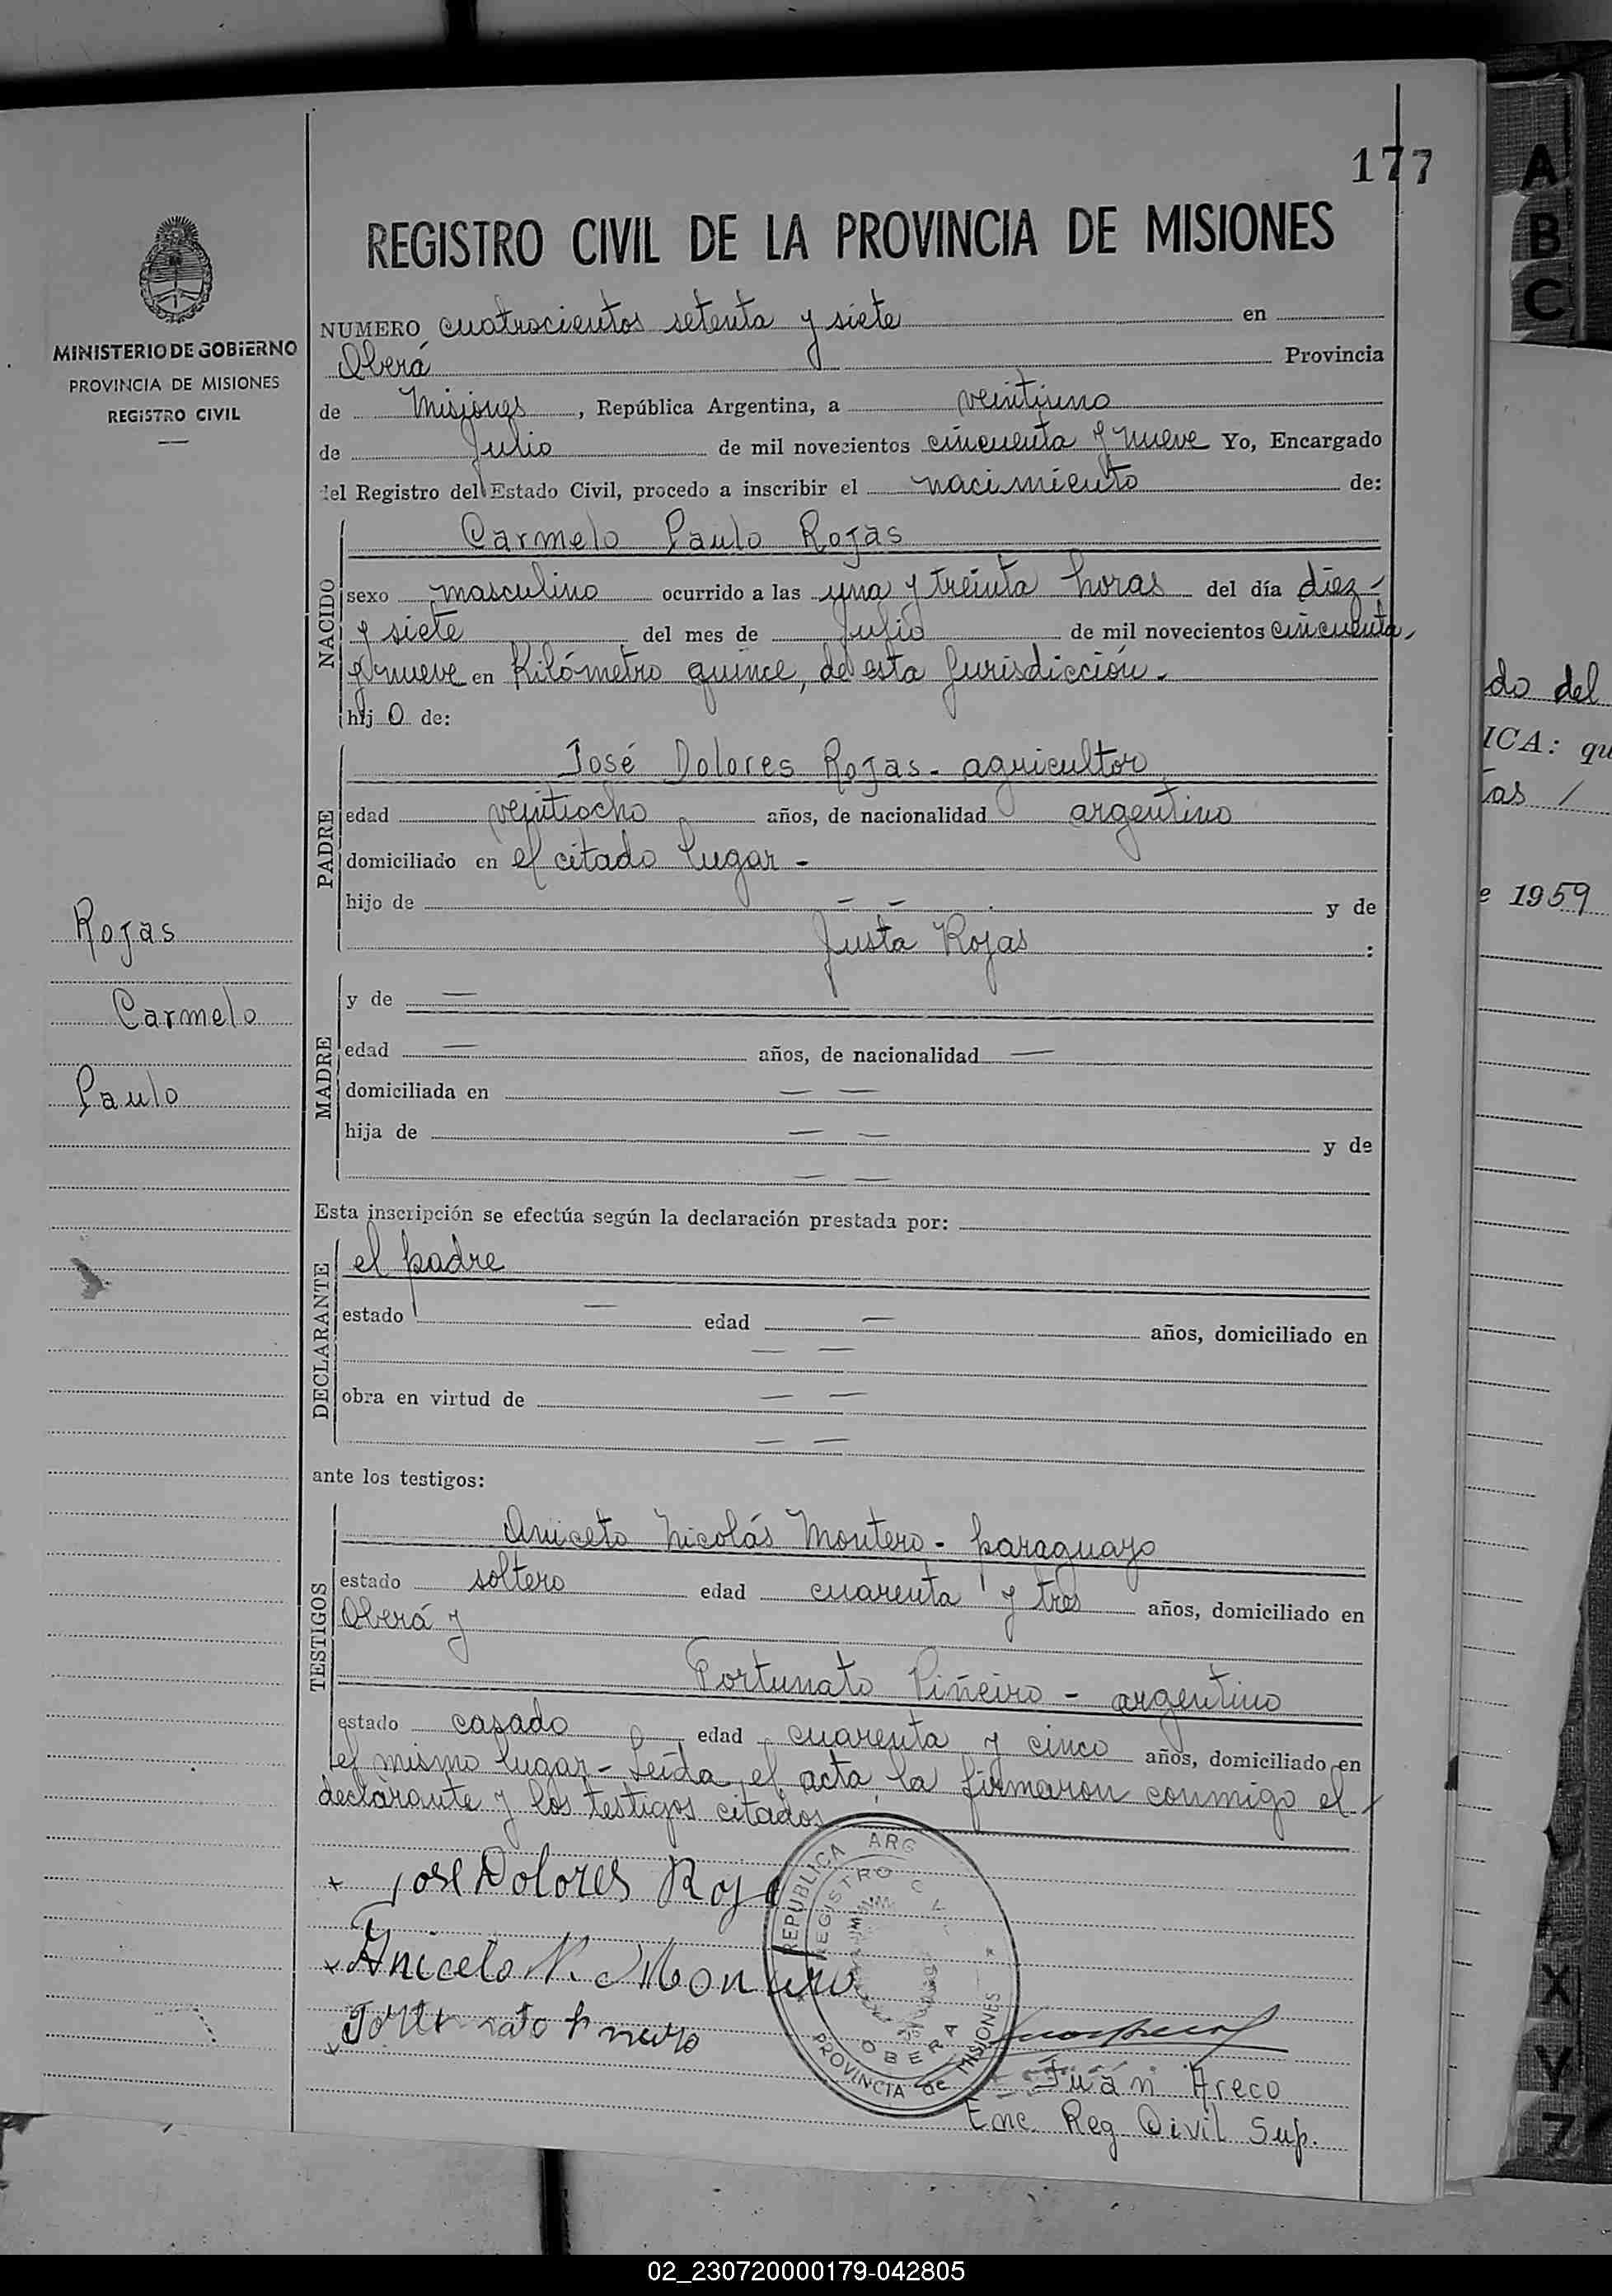 177
REGISTRO CIVIL DE LA PROVINCIA DE MISIONES
MINISTERIO DE GOBIERNO
PROVINCIA DE MISIONES
REGISTRO CIVIL
NUMERO cuatrocientos setenta y siete en
Oberá Provincia
de Misiones, República Argentina, a veintiuno
de Julio de mil novecientos cincuenta y nueve Yo, Encargado
del Registro del Estado Civil, procedo a inscribir el nacimiento de:
NACIDO
Carmelo Paulo Rojas
sexo masculino ocurrido a las una y treinta horas del día diez-
y siete del mes de Julio de mil novecientos cincuenta-
y nueve en Kilómetro quince, de esta Jurisdicción.-
hij o de:
PADRE
José Dolores Rojas - agricultor
edad veintiocho años, de nacionalidad argentino
domiciliado en el citado lugar -
hijo de — — y de
Justa Rojas :
MADRE
y de —
edad — años, de nacionalidad —
domiciliada en — —
hija de — — y de
— —
Esta inscripción se efectúa según la declaración prestada por:
DECLARANTE
el padre
estado — edad — años, domiciliado en
— —
obra en virtud de — —
— —
ante los testigos:
TESTIGOS
Aniceto Nicolás Montero - paraguayo
estado soltero edad cuarenta y tres años, domiciliado en
Oberá y
Fortunato Piñeiro - argentino
estado casado edad cuarenta y cinco años, domiciliado en
el mismo lugar - Leída el acta, la firmaron conmigo el -
declarante y los testigos citados
Rojas
Carmelo
Paulo
x Jose Dolores Roja
x Aniceto N. Montero
x Fortunato
REPUBLICA ARG
REGISTRO CIVIL
OBERA
PROVINCIA de MISIONES
Juan Areco
Enc. Reg. Civil Sup.
A
B
C
X
Y
Z
do del
ICA: qu
tas /
e 1959
02_230720000179-042805